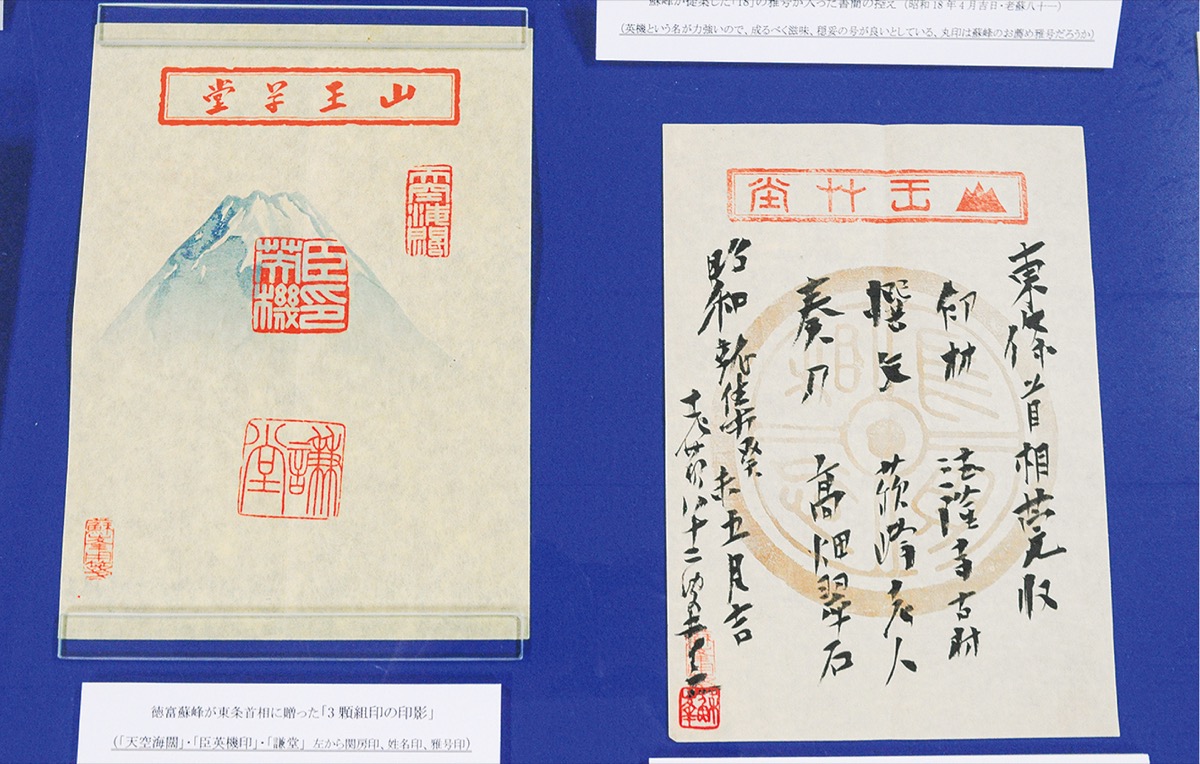 蘇峰が提案した「18」の雅号が入った書簡の控え (昭和18年4月吉日・老蘇八十一)
(英機という名が力強いので、成るべく滋味、穏妥の号が良いとしている、丸印は蘇峰のお薦め雅号だろうか)
山王草堂
天空海闊
臣英機印
謙堂
徳富蘇峰が東条首相に贈った「3顆組印の印影」
(「天空海闊」・「臣英機印」・「謙堂」 左から関房印、姓名印、雅号印)
山王艸堂
東條首相莞収
印材 法隆寺古材
撰文 蘇峰老人
奏刀 高畑翠石
昭和龍集癸未五月吉